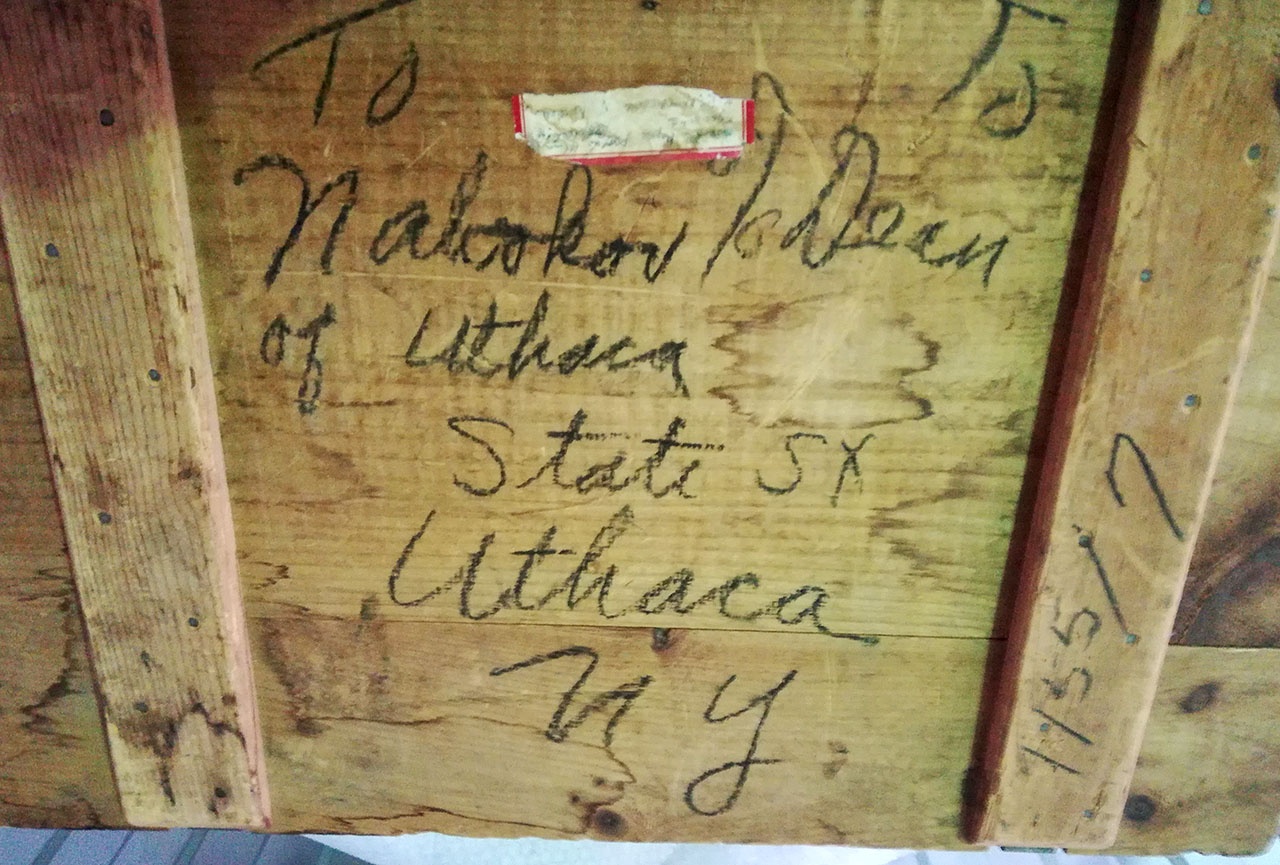 To To
Nabokov % Dean
of Uthaca
State SX
Uthaca
NY
1155/7